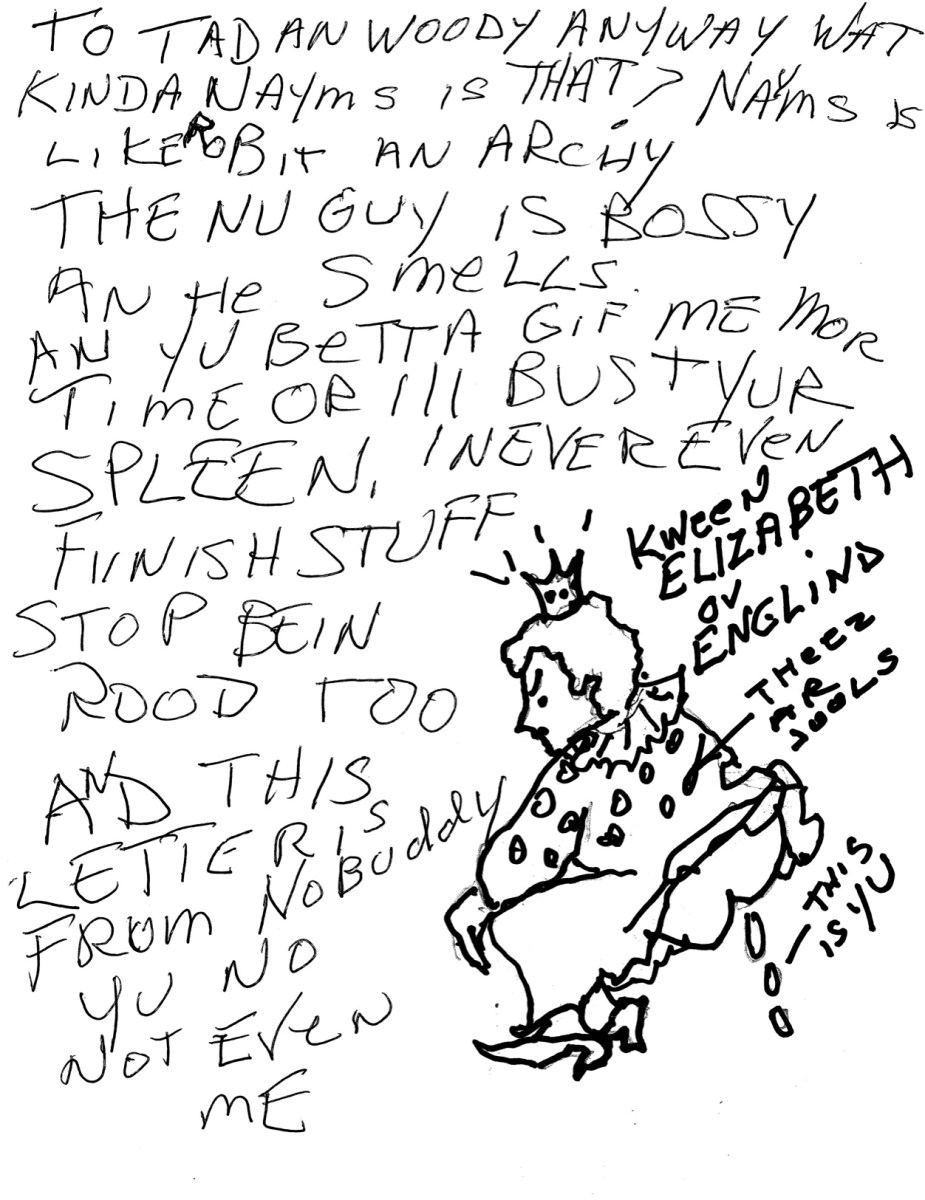 TO TAD AN WOODY ANYWAY WAT
KINDA NAYMS IS THAT? NAYMS IS
LIKE ROBIT AN ARCHY
THE NU GUY IS BOSSY
AN HE SMELLS.
AN YU BETTA GIF ME MOR
TIME OR I'll BUST YUR
SPLEEN. I NEVER EVEN
FIINISH STUFF
STOP BEIN
ROOD TOO
AND THIS
LETTER IS
FROM NOBUDDY
YU NO
NOT EVEN
ME
KWEEN
ELIZABETH
OV
ENGLIND
THEEZ
AR
JOOLS
THIS
IS YU